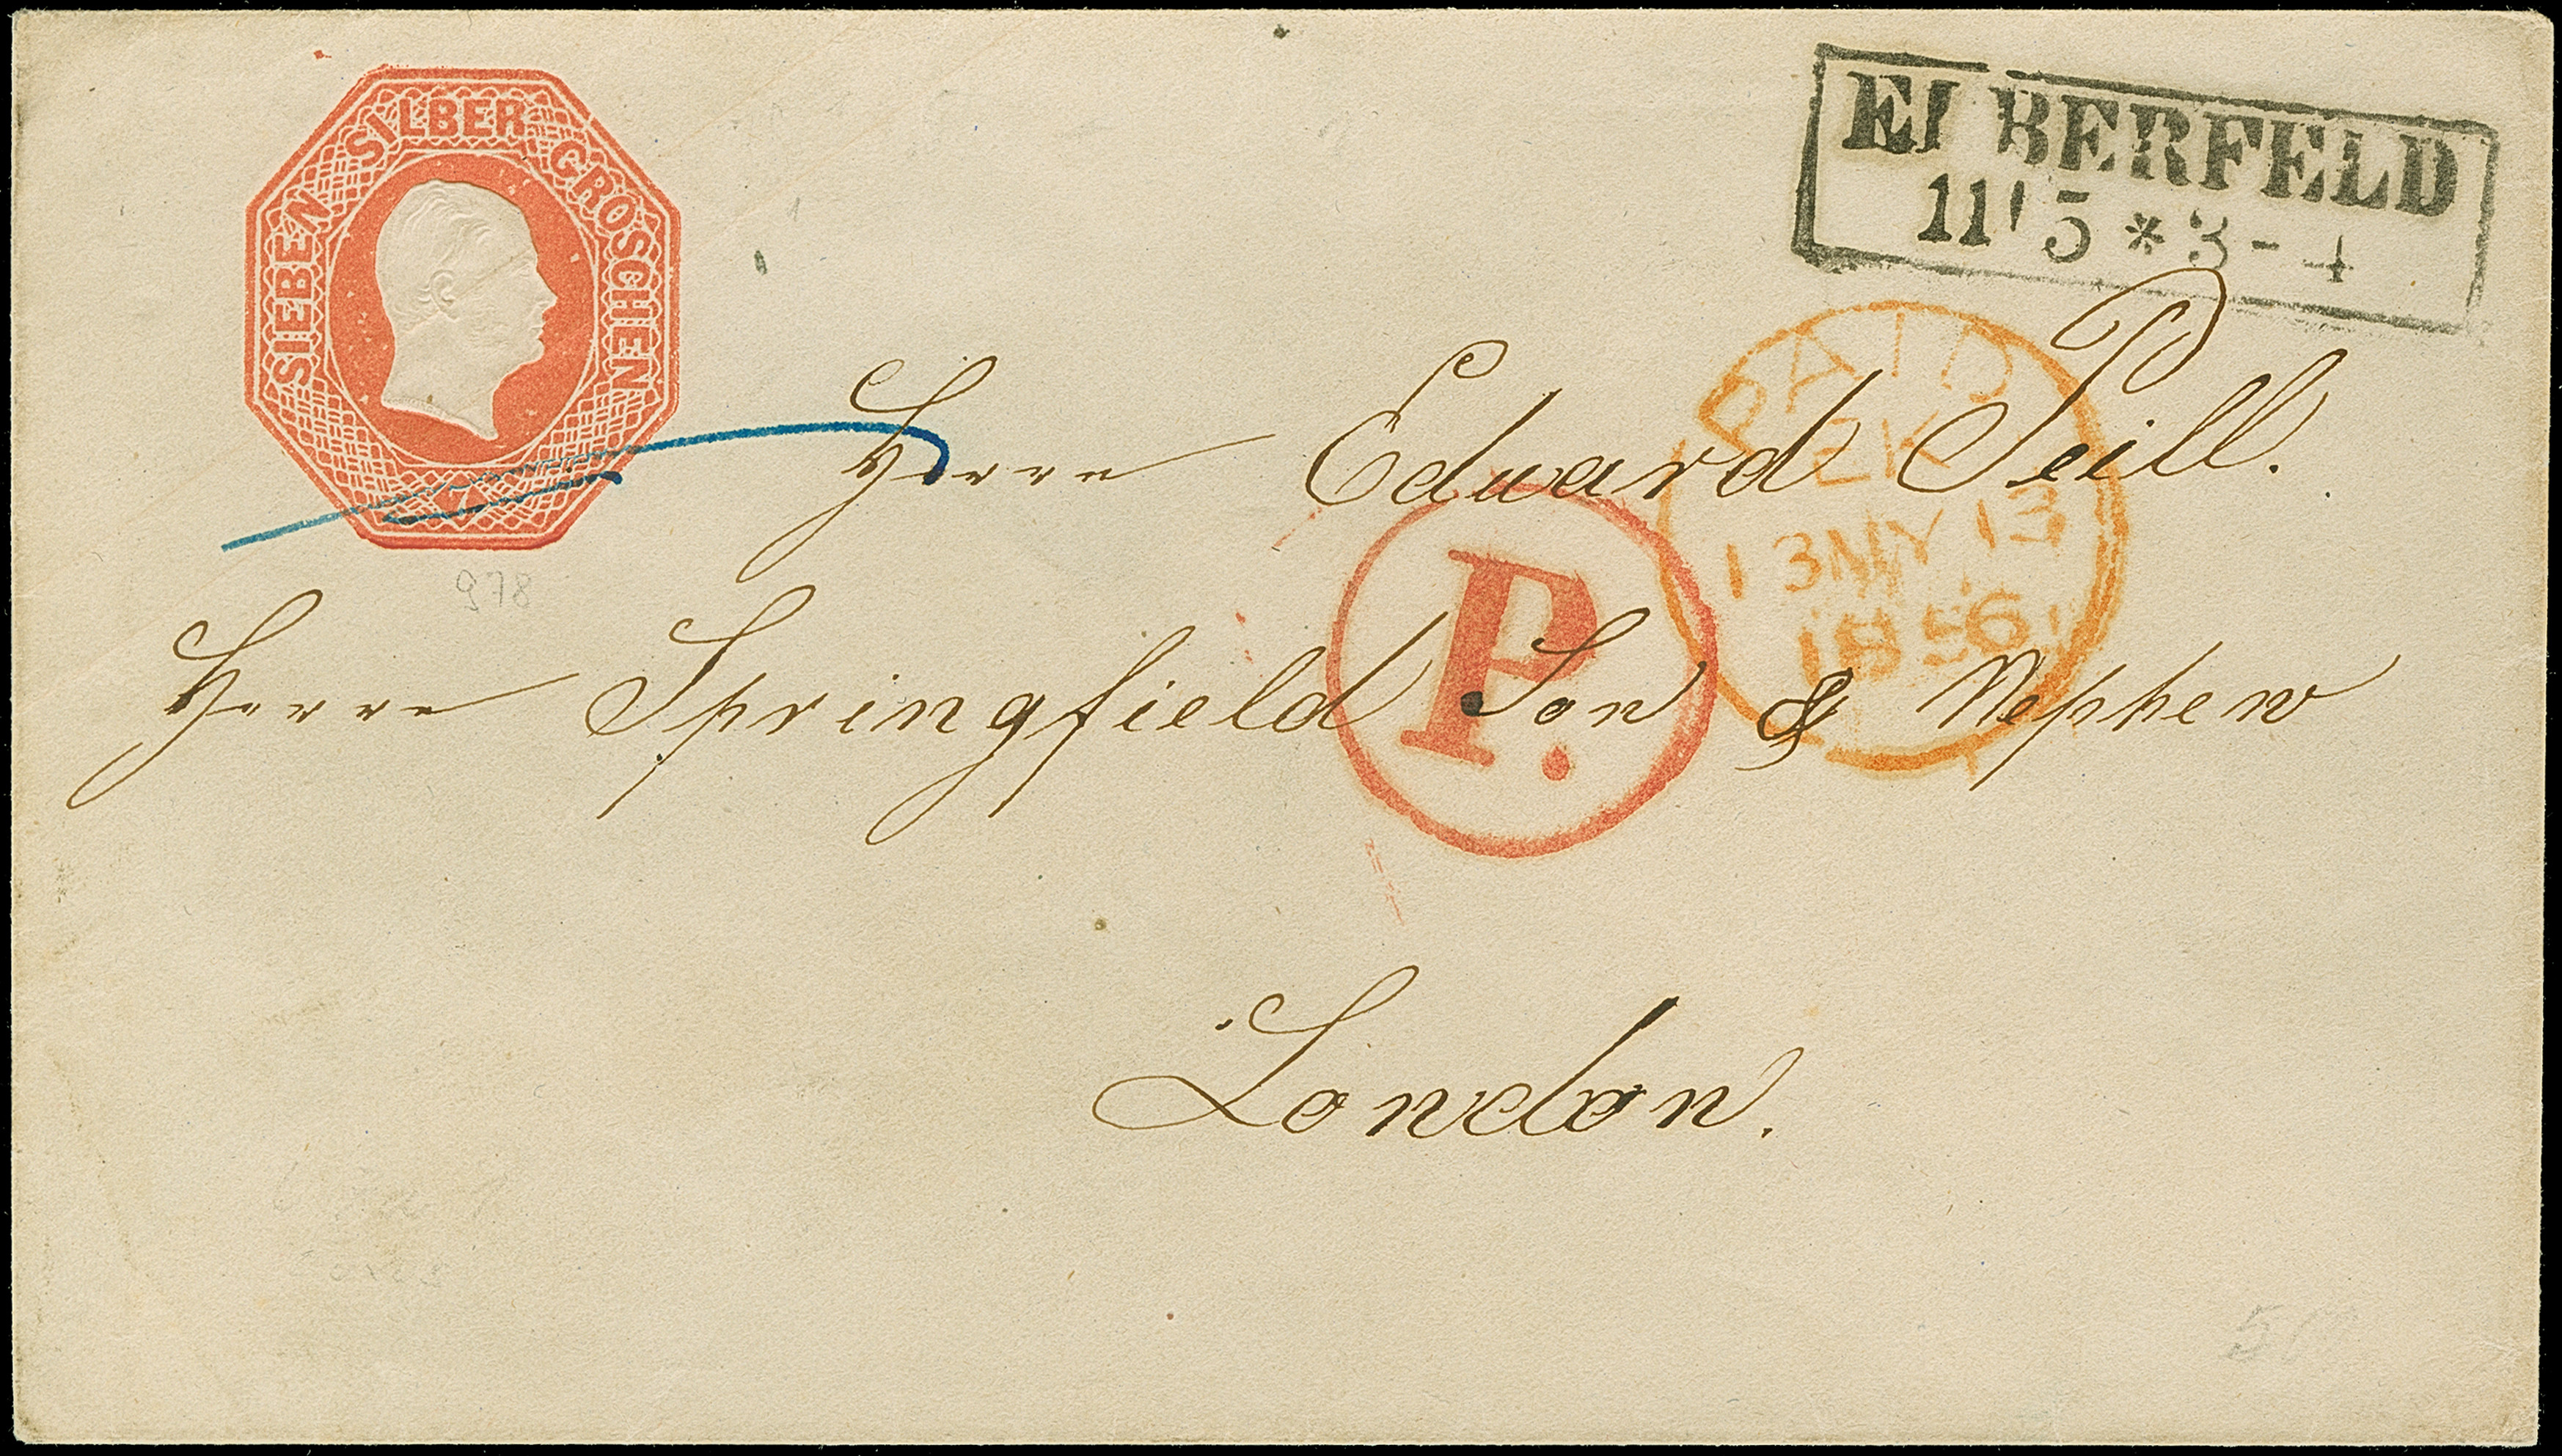 SIEBEN SILBER GROSCHEN
7
ELBERFELD
11 5 * 3 - 4
PAID
ZK
13 MY 13
1856
P.
Herrn Eduard Peill.
Herrn Springfield Son & Nephew
London.
978